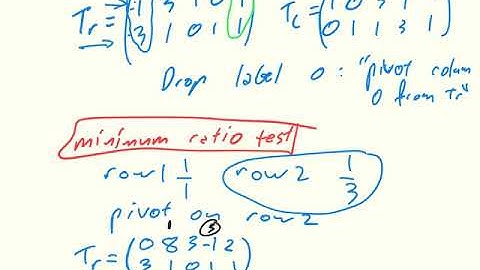 Tr = (1 3 1 0 1
3 1 0 1 1)
Tc = (1 0 3 1
0 1 1 3 1)
Drop label 0: "pivot colum
0 from Tr"
minimum ratio test
row1 1/1 row2 1/3
pivot on row2
1 3
Tr = (0 8 3 -1 2)
3 1 0 1 1